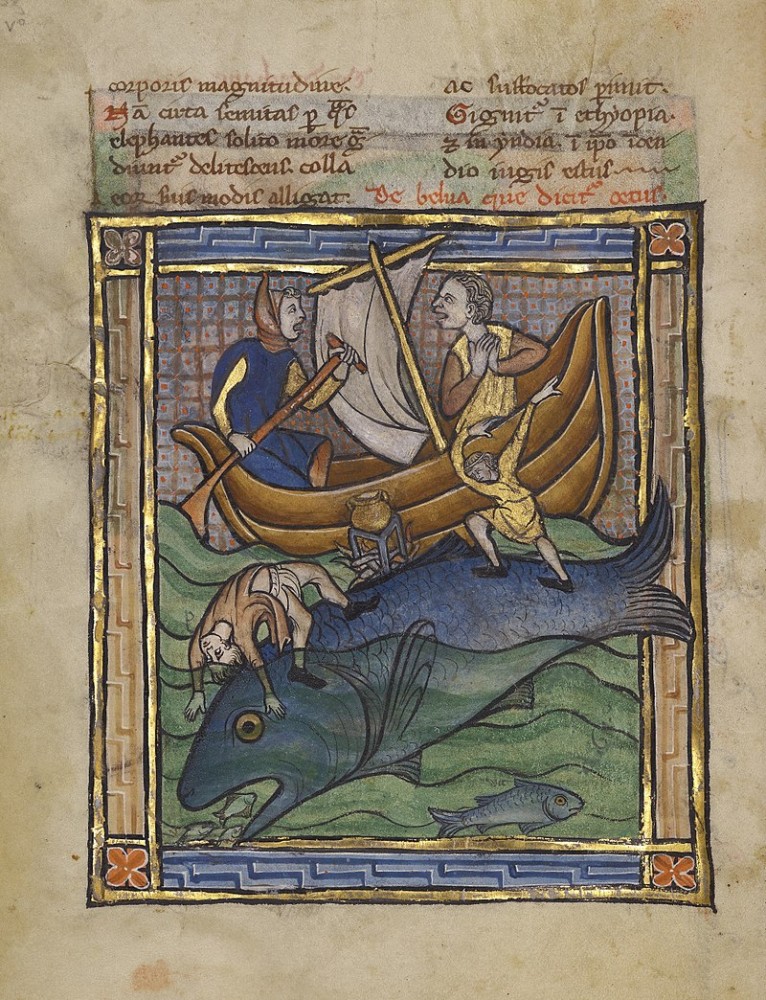 corporis magnitudine.
Nā circa semitas p q̄s
elephantes solito more g̃
diuntᷣ delitescens. colla
eoꝝ suis modis alligat.
ac suffocatos pimit.
Gignitᷣ ī ethyopia.
⁊ in yndia. ī ipo icen
dio iugis estus
De belua que dicitᷣ cetus.